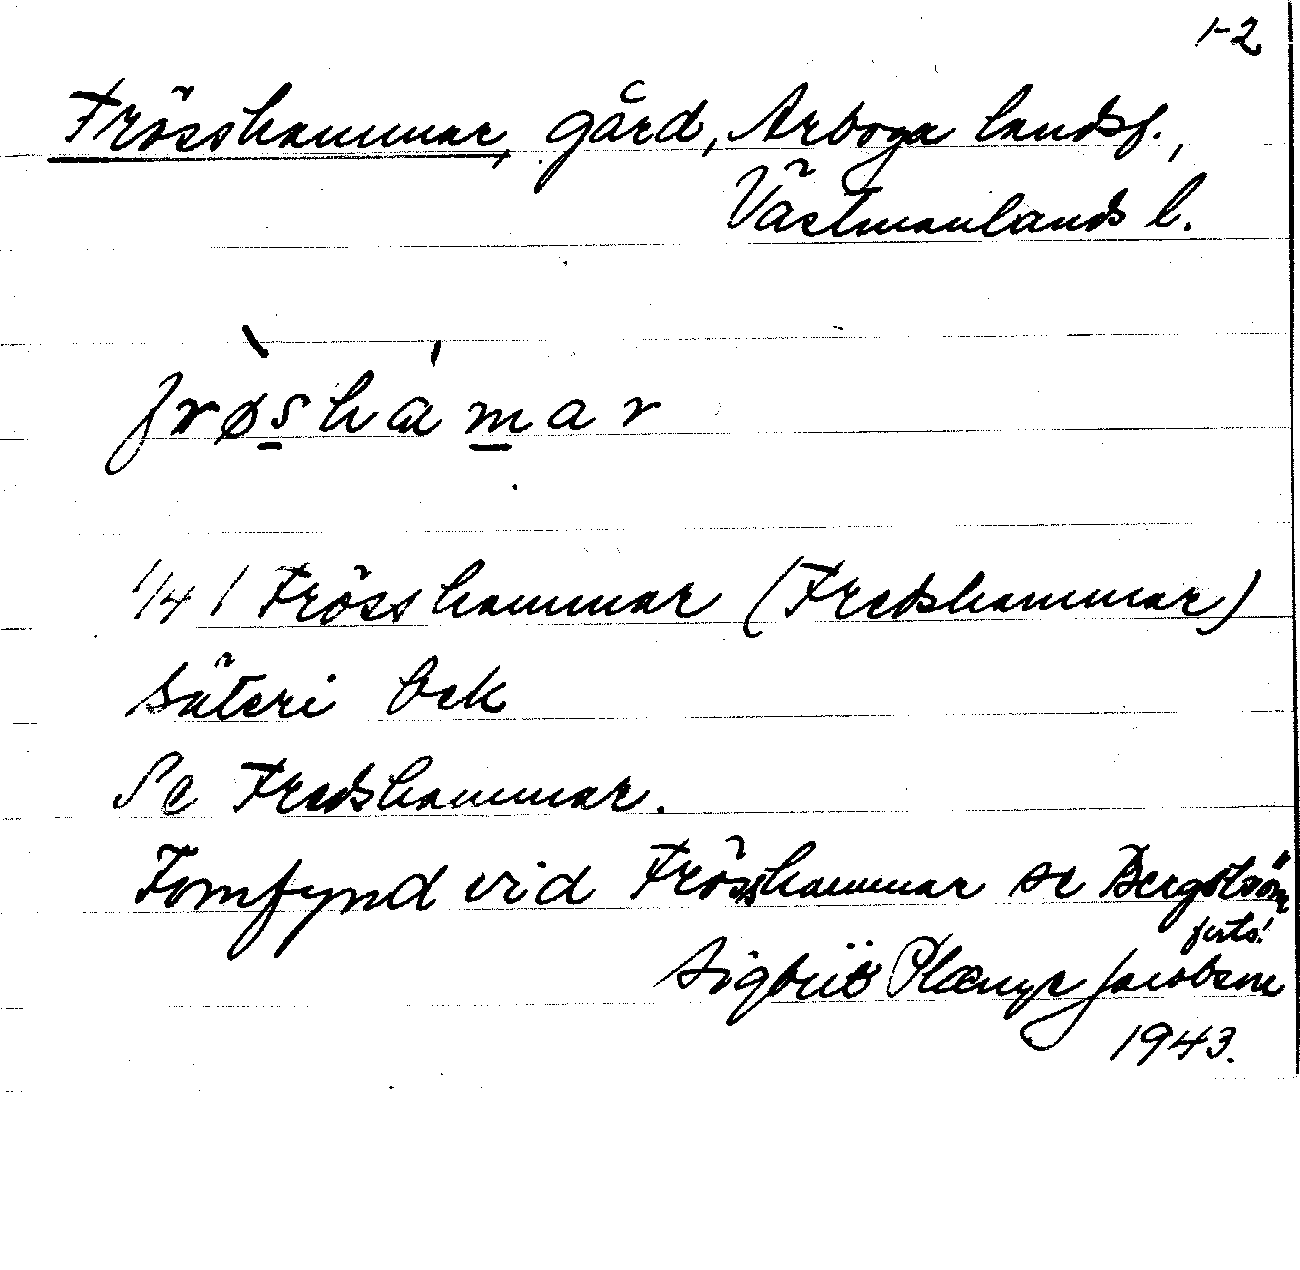 1-2
Frösshammar, gård, Arboga landsf.,
Västmanlands l.
frø̀shámar
1/4 1 Frösshammar (Fredshammar)
säteri Oek
Se Fredshammar.
Fornfynd vid Frösshammar se Bergström
Sigbrit Plænge Jacobson
1943.